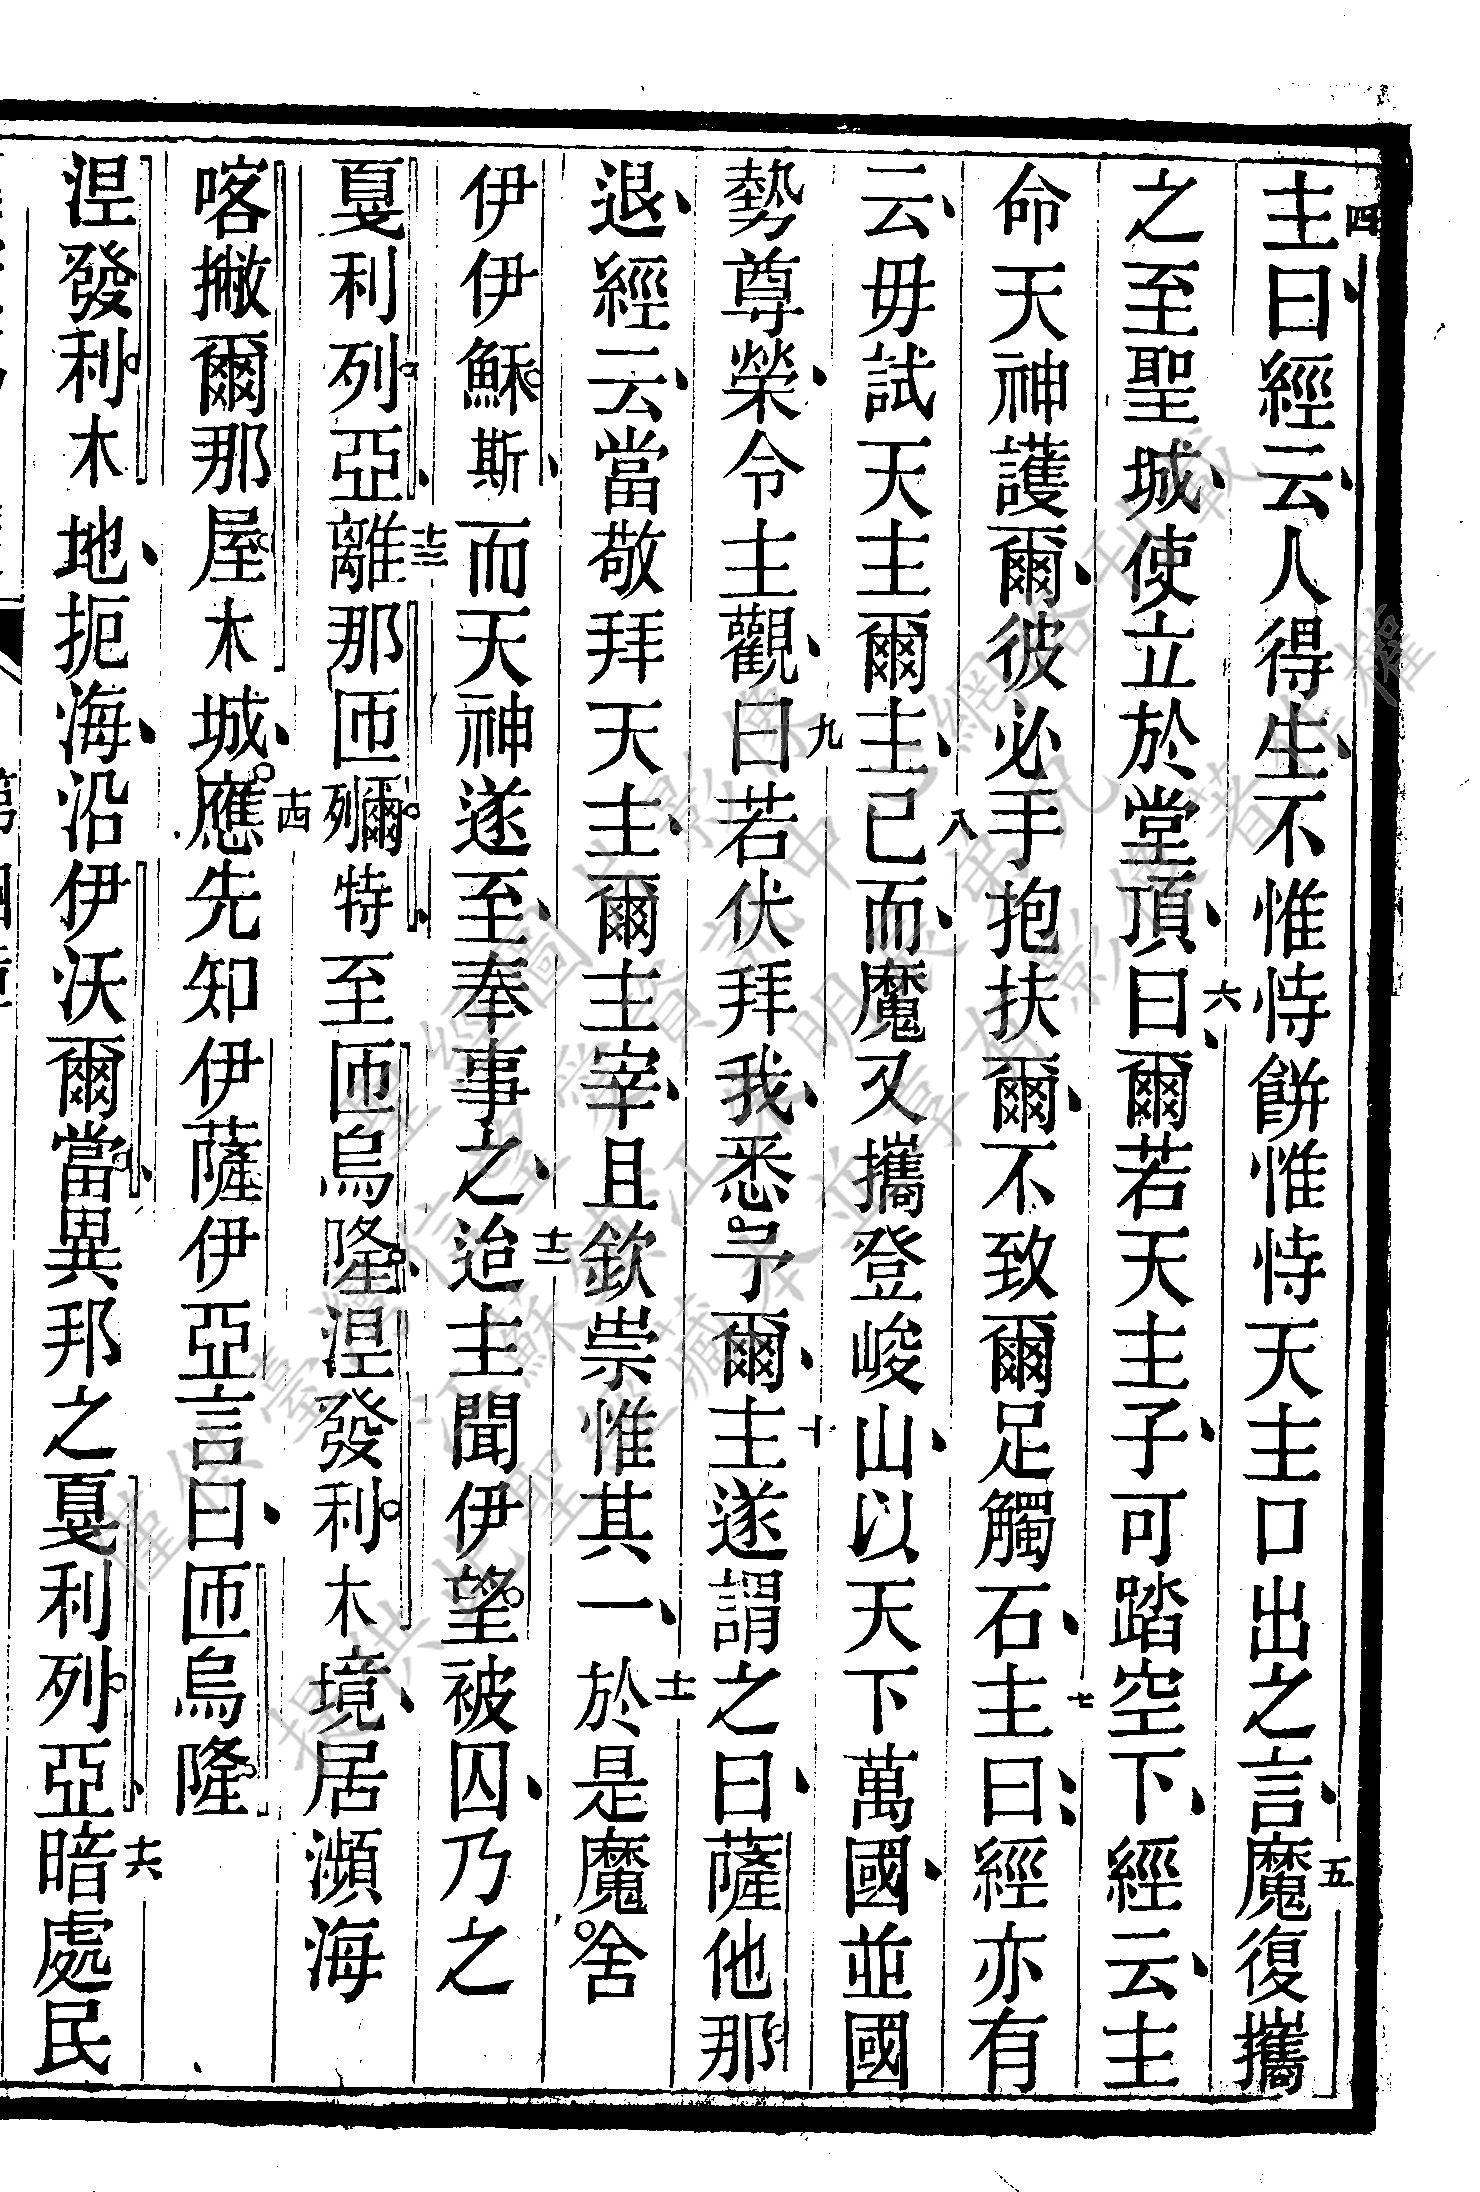 四主曰經云人得生不惟恃餅惟恃天主口出之言五魔復攜
之至聖城使立於堂頂六曰爾若天主子可踏空下經云主
命天神護爾彼必手抱扶爾不致爾足觸石七主曰經亦有
云毋試天主爾主八已而魔又攜登峻山以天下萬國並國
勢尊榮令主觀九曰若伏拜我悉予爾十主遂謂之曰薩他那
退經云當敬拜天主爾主宰且欽崇惟其一十一於是魔舍
伊伊穌斯而天神遂至奉事之十二迨主聞伊望被囚乃之
戛利列亞十三離那匝列彌特至匝烏隆涅發利木境居瀕海
喀撇爾那屋木城十四應先知伊薩伊亞言曰匝烏隆
涅發利木地扼海沿伊沃爾當異邦之戛利列亞十六暗處民